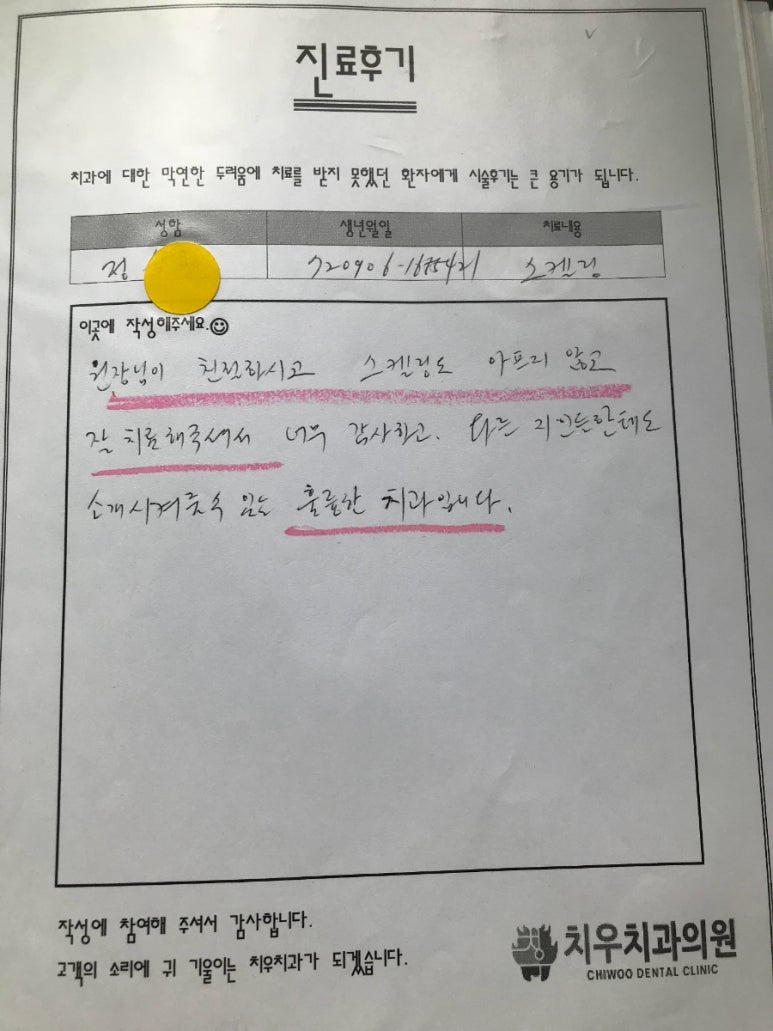 진료후기
치과에 대한 막연한 두려움에 치료를 받지 못했던 환자에게 시술후기는 큰 용기가 됩니다.
성함 생년월일 치료내용
정 스케링
이곳에 작성해주세요.☺
원장님이 친절하시고 스켈링도 아프지 않고
잘 치료해주셔서 너무 감사하고. 다른 지인들한테도
소개시켜줄수 있는 훌륭한 치과입니다.
작성에 참여해 주셔서 감사합니다.
고객의 소리에 귀 기울이는 치우치과가 되겠습니다.
치우치과의원
CHIWOO DENTAL CLINIC